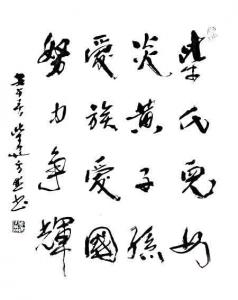 柴氏兒女
炎黃子孫
愛族愛國
努力爭輝